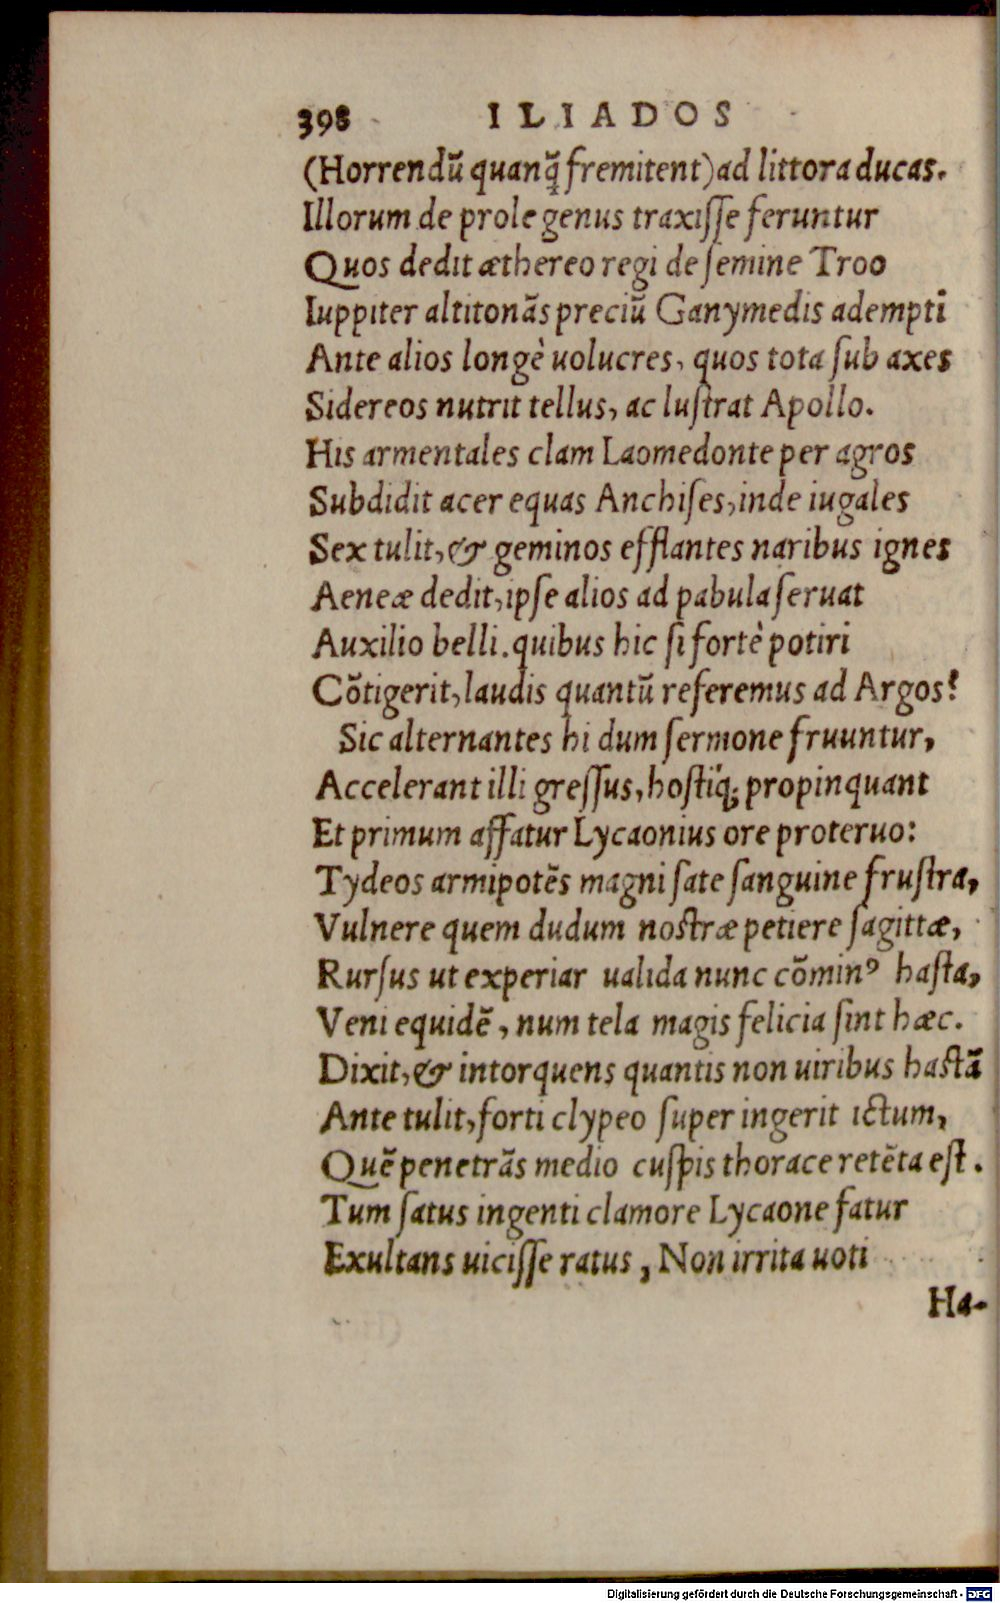 398 ILIADOS
(Horrendũ quanq̃ fremitent) ad littora ducas.
Illorum de prole genus traxiſſe feruntur
Quos dedit æthereo regi de ſemine Troo
Iuppiter altitonãs preciũ Ganymedis adempti
Ante alios longè uolucres, quos tota ſub axes
Sidereos nutrit tellus, ac luſtrat Apollo.
His armentales clam Laomedonte per agros
Subdidit acer equas Anchiſes, inde iugales
Sex tulit, & geminos efflantes naribus ignes
Aeneæ dedit, ipſe alios ad pabula ſeruat
Auxilio belli. quibus hic ſi fortè potiri
Cõtigerit, laudis quantũ referemus ad Argos?
Sic alternantes hi dum ſermone fruuntur,
Accelerant illi greſſus, hoſtiq́; propinquant
Et primum affatur Lycaonius ore proteruo:
Tydeos armipotẽs magni ſate ſanguine fruſtra,
Vulnere quem dudum noſtræ petiere ſagittæ,
Rurſus ut experiar ualida nunc cõminꝰ haſta,
Veni equidẽ, num tela magis felicia ſint hæc.
Dixit, & intorquens quantis non uiribus haſtã
Ante tulit, forti clypeo ſuper ingerit ictum,
Quẽ penetrãs medio cuſpis thorace retẽta eſt.
Tum ſatus ingenti clamore Lycaone fatur
Exultans uiciſſe ratus, Non irrita uoti
Ha-
Digitalisierung gefördert durch die Deutsche Forschungsgemeinschaft - DFG